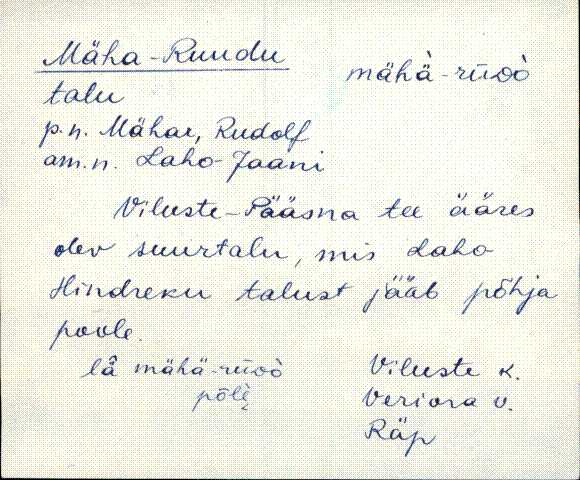 Mäha-Ruudu
mähä-rūòò
talu
p.n. Mähar, Rudolf
am.n. Laho-Jaani
Viluste-Pääsna tee ääres
olev suurtalu, mis Laho
Hindreku talust jääb põhja
poole.
lâ mähä-rūòò
põlè̬
Viluste k.
Veriora v.
Räp